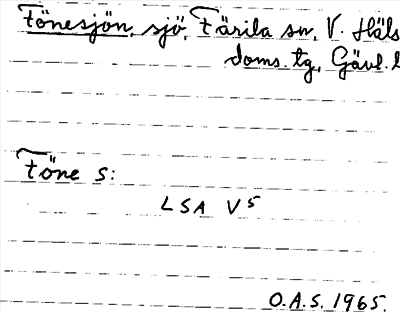 Fönesjön, sjö, Färila sn, V. Häls
doms. tg, Gävl. l
Föne s:
LSA V5
O.A.S. 1965.